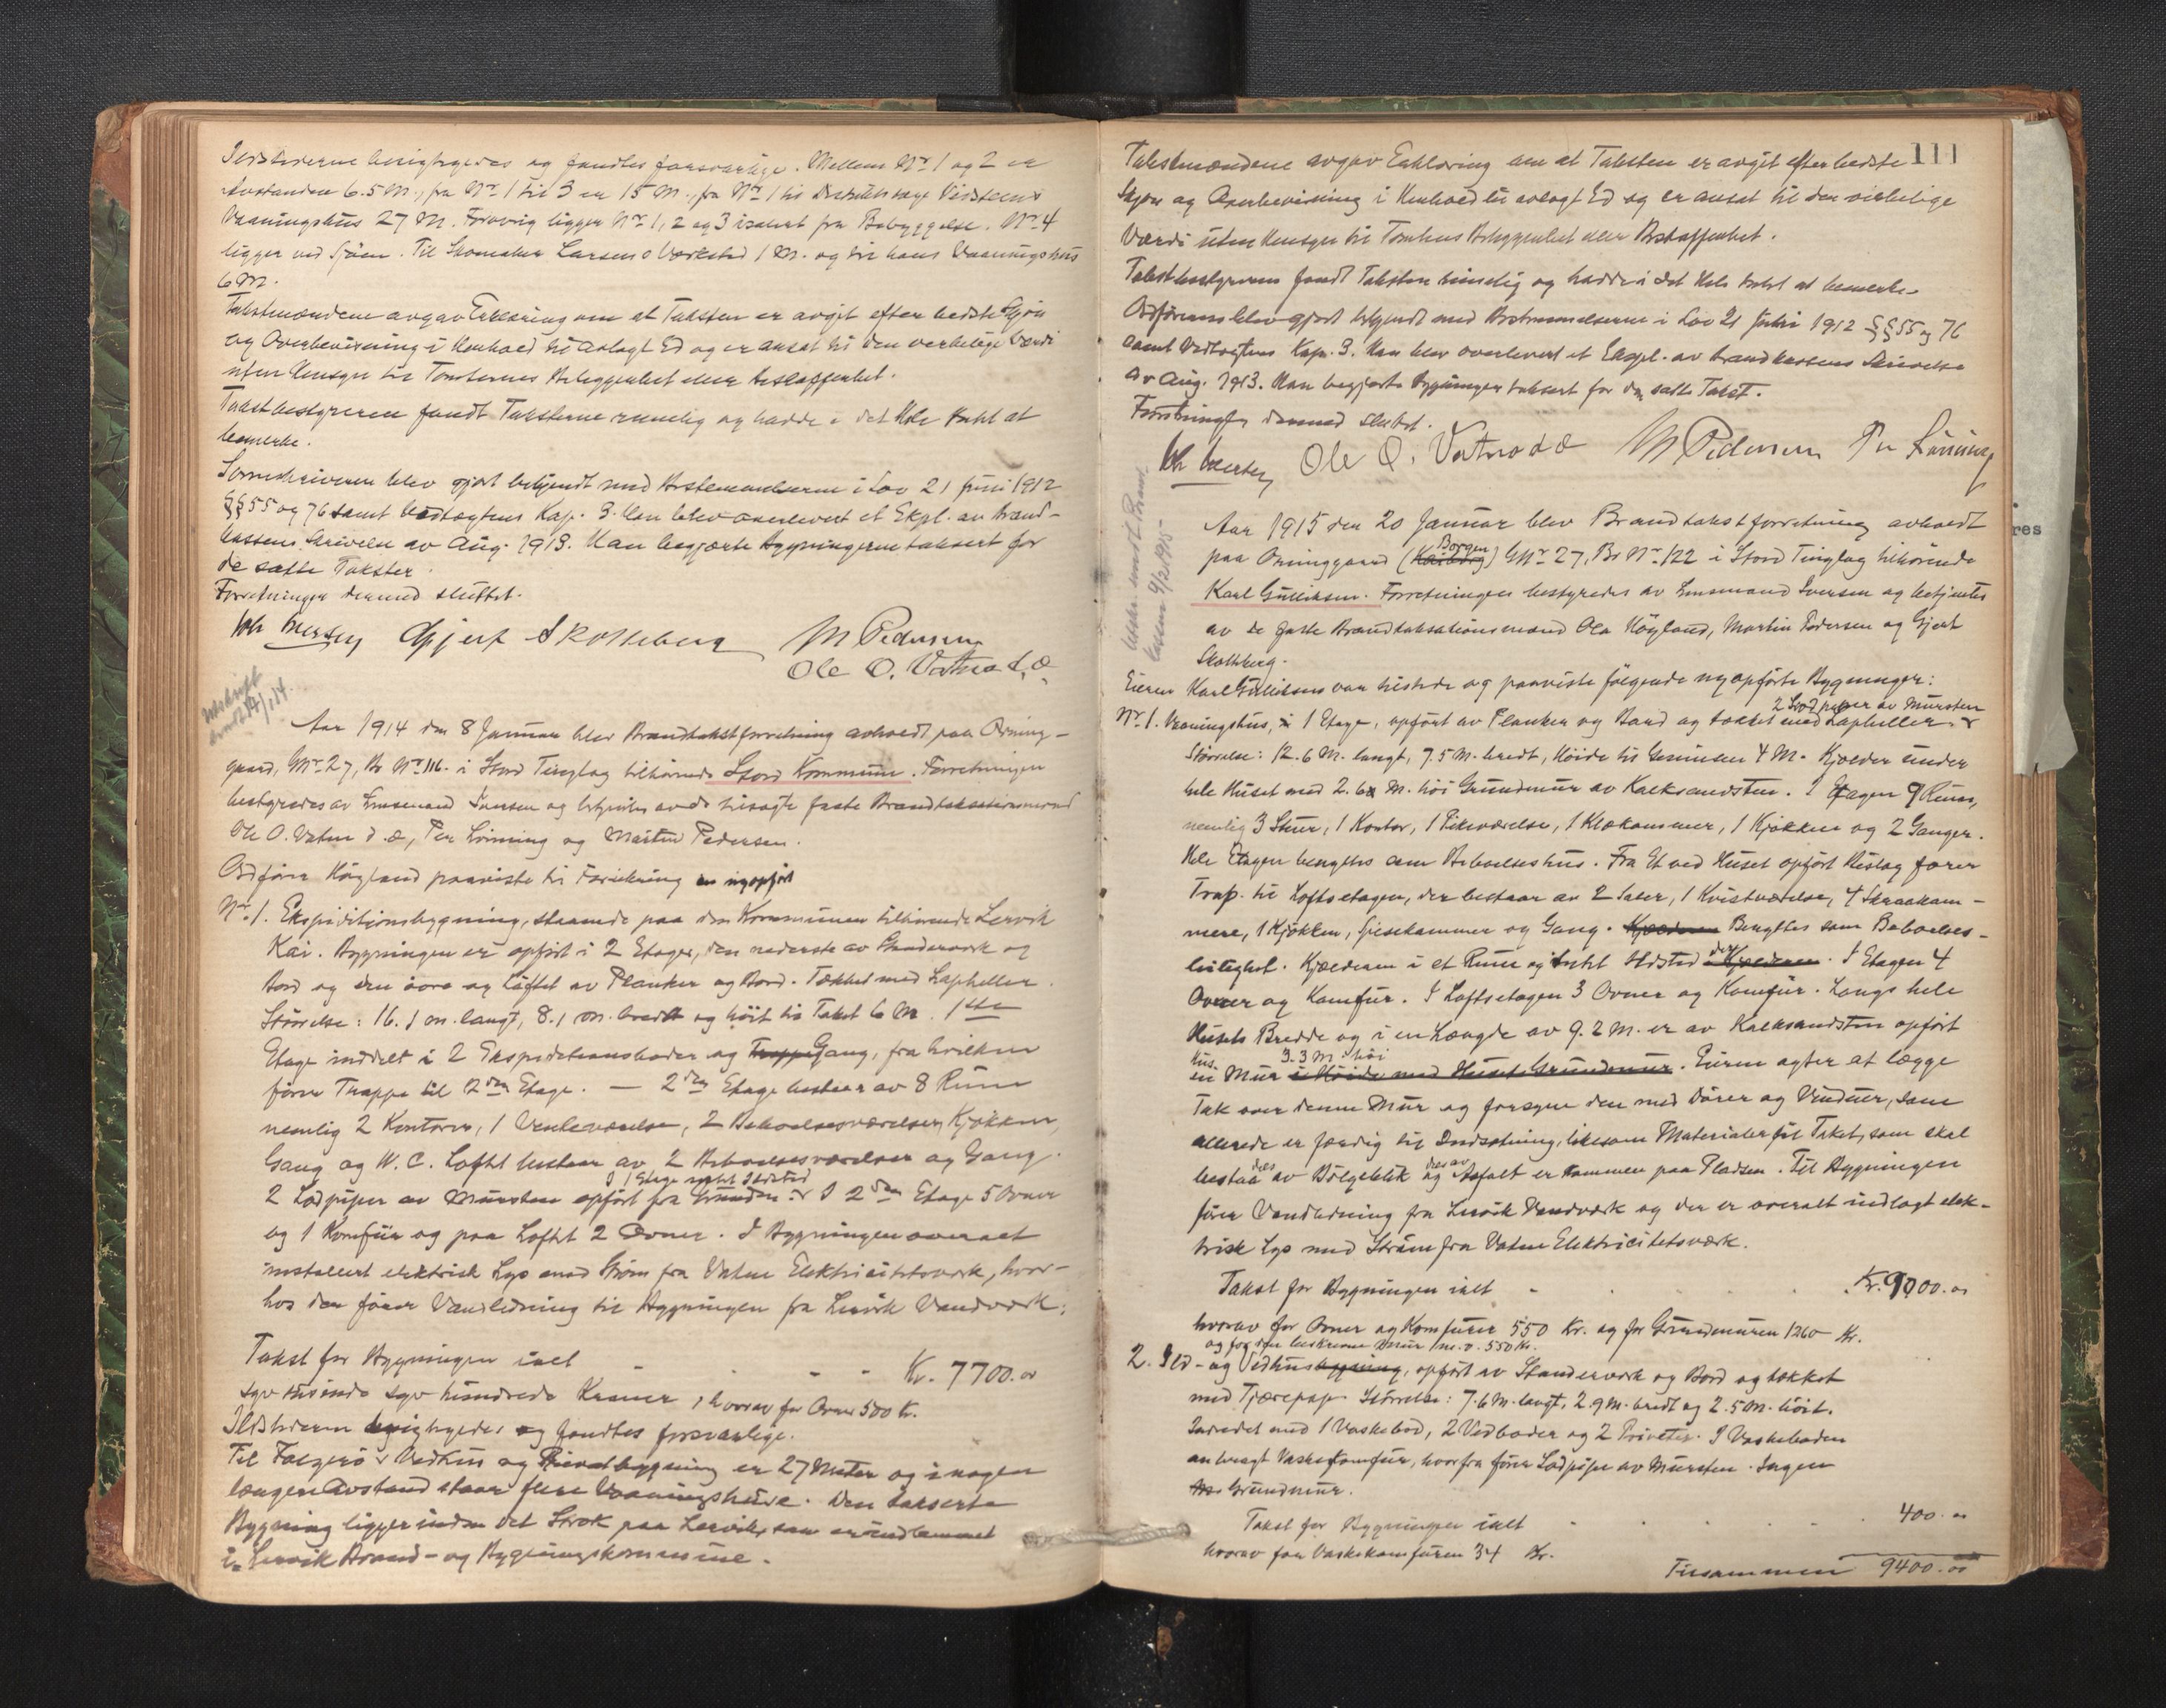 Ildstederne besigtigedes og fandtes forsvarlige. Mellem Nr 1 og 2 er
Avstanden 6.5 M., fra Nr 1 til 3 er 15 M., fra Nr 1 til
Vaaningshus 27 M. Forøvrig ligger Nr 1, 2 og 3 isolert fra Bebyggelse. Nr 4
ligger ved Sjøen. Til Skomaker Larsens Værksted 1 M. og til hans Vaaningshus
6 M.
Takstmændene avgav Erklæring om at Taksten er avgit efter bedste Skjøn
og Overbevisning i Henhold til avlagt Ed og er ansat til den virkelige Værdi
uten Hensyn til Tomternes Beliggenhet eller Beskaffenhet.
Takstbestyreren fandt Taksterne rimelig og hadde i det Hele intet at
bemerke.
blev gjort bekjendt med Bestemmelserne i Lov 21 Juni 1912
§§ 55 og 76 samt Vedtægtens Kap. 3. Han blev overlevert et Expl. av Brand-
kassens Skrivelse av Aug. 1913. Han begjærte Bygningerne taksert for
de satte Takster.
Forretningen dermed sluttet.
Joh Iversen Gjert Skotteberg M Pedersen
Ole O. Vatna d. æ.
Utskrift
Aar 1914 den 8 Januar blev Brandtakstforretning avholdt paa Orning-
gaard, GNr 27, Br Nr 116. i Stord Tinglag tilhørende Stord Kommune. Forretningen
bestyredes av Lensmand Iversen og betjentes av de tilsagte faste Brandtaksationsmænd
Ole O. Vatna d. æ., Per Lønning og Martin Pedersen.
Ordfører Høgland paaviste til Forsikring en nyopført
Nr. 1. Ekspeditionsbygning, staaende paa den Kommunen tilhørende Lervik
Kai. Bygningen er opført i 2 Etager, den nederste av Stenderverk og
Bord og den øvre og Loftet av Planker og Bord. Tækket med Lapheller.
Størrelse: 16.1 m. langt, 8.1 m. bredt og høit til Taket 6 M. 1ste
Etage inddelt i 2 Ekspeditionsboder og Trappe Gang, fra hvilken
fører Trappe til 2den Etage. — 2den Etage bestaar av 8 Rum
nemlig 2 Kontorer, 1 Venteværelse, 2 Beboelsesværelser, Kjøkken,
Gang og W. C. Loftet bestaar av 2 Beboelsesværelser og Gang.
I 1 Etage intet Ildsted
2 Lodpiper av Mursten opført fra Grunden. I 2den Etage 5 Ovner
og 1 Komfur og paa Loftet 2 Ovner. I Bygningen overalt
installert elektrisk Lys med Strøm fra Vatne Elektricitetsverk, hvor-
hos der fører Vandledning til Bygningen fra Lervik Vandverk.
Takst for Bygningen ialt - - - Kr. 7700.00
syv tusinde syv hundrede Kroner, hvorav for Ovner 500 Kr.
Ildstederne besigtigedes og fandtes forsvarlige.
Til Vedhus og Privetbygning er 27 Meter og i nogen
længere Avstand staar flere Vaaningshuse. Den takserte
Bygning ligger inden det Strøk paa Lervik, som er indlemmet
i Lervik Brand- og Bygningskommune.
111
Takstmændene avgav Erklæring om at Taksten er avgit efter bedste
Skjøn og Overbevisning i Henhold til avlagt Ed og er ansat til den virkelige
Værdi uten Hensyn til Tomtens Beliggenhet eller Beskaffenhet.
Takstbestyreren fandt Taksten rimelig og hadde i det Hele intet at bemerke.
Ordføreren blev gjort bekjendt med Bestemmelserne i Lov 21 Juni 1912 §§ 55 og 76
samt Vedtægtens Kap. 3. Han blev overlevert et Expl. av Brandkassens Skrivelse
av Aug. 1913. Han begjærte Bygningen taksert for den satte Takst.
Forretningen dermed sluttet.
Joh Iversen Ole O. Vatna d. æ M Pedersen Per Lønning
Utskr. sendt Brand-
kassen 9/2 1915
Aar 1915 den 20 Januar blev Brandtakstforretning avholdt
Borgen
paa Orninggaard () GNr 27, Br Nr. 122 i Stord Tinglag tilhørende
Karl Gulliksen. Forretningen bestyredes av Lensmand Iversen og betjentes
av de faste Brandtaksationsmænd Ola Høgland, Martin Pedersen og Gjert
Skotteberg.
Eieren Karl Gulliksen var tilstede og paaviste følgende nyopførte Bygninger:
2 Lodpiper av Mursten
Nr. 1. Vaaningshus, i 1 Etage, opført av Planker og Bord og tækket med Lapheller.
Størrelse: 12.6 M. langt, 7.5 M. bredt, Høide til Gesimsen 4 M. Kjælder under
hele Huset med 2.6 M. høi Grundmur av Kalksandsten. I Etagen 9 Rum,
nemlig 3 Stuer, 1 Kontor, 1 Pikeværelse, 1 Klækammer, 1 Kjøkken og 2 Ganger.
Hele Etagen benyttes som Beboelseshus. Fra et ved Huset opført Bislag fører
Trap. til Loftsetagen, der bestaar av 2 Saler, 1 Kvistværelse, 4 Skraakam-
mere, 1 Kjøkken, Spisekammer og Gang. Kjælderen Benyttes som Beboelses-
leilighet. Kjælderen i et Rum og intet Ildsted der i Kjælderen. I Etagen 4
Ovner og Komfur. I Loftsetagen 3 Ovner og Komfur. Langs hele
Husets Bredde og i en Længde av 9.2 M. er av Kalksandsten opført
3.3 M. høi
en Mur i Høide med Husets Grundmur. Eieren agter at lægge
Tak over denne Mur og forsyne den med Dører og Vinduer, som
allerede er færdig til Indsætning, likesom Materialer til Taket, som skal
bestaa dels av Bølgeblik og dels av Asfalt er kommen paa Pladsen. Til Bygningen
fører Vandledning fra Lervik Vandverk og der er overalt indlagt elek-
trisk Lys med Strøm fra Vatne Elektricitetsværk.
Takst for Bygningen ialt - Kr. 9000.00
hvorav for Ovner og Komfurer 550 Kr. og for Grundmuren 1260 Kr.
og for den beskrevne Mur m. v. 550 Kr.
2. Ild- og Vedhusbygning, opført av Stenderverk og Bord og tækket
med Tjærepap. Størrelse: 7.6 M. langt, 2.9 M. bredt og 2.5 M. høit.
Indredet med 1 Vaskebod, 2 Vedboder og 2 Priveter. I Vaskeboden
anbragt Vaskekomfur, hvorfra fører Lodpipe av Mursten. Ingen
Grundmur.
Takst for Bygningen ialt - 400.00
hvorav for Vaskekomfuren 34 Kr.
Tilsammen 9400.00
res